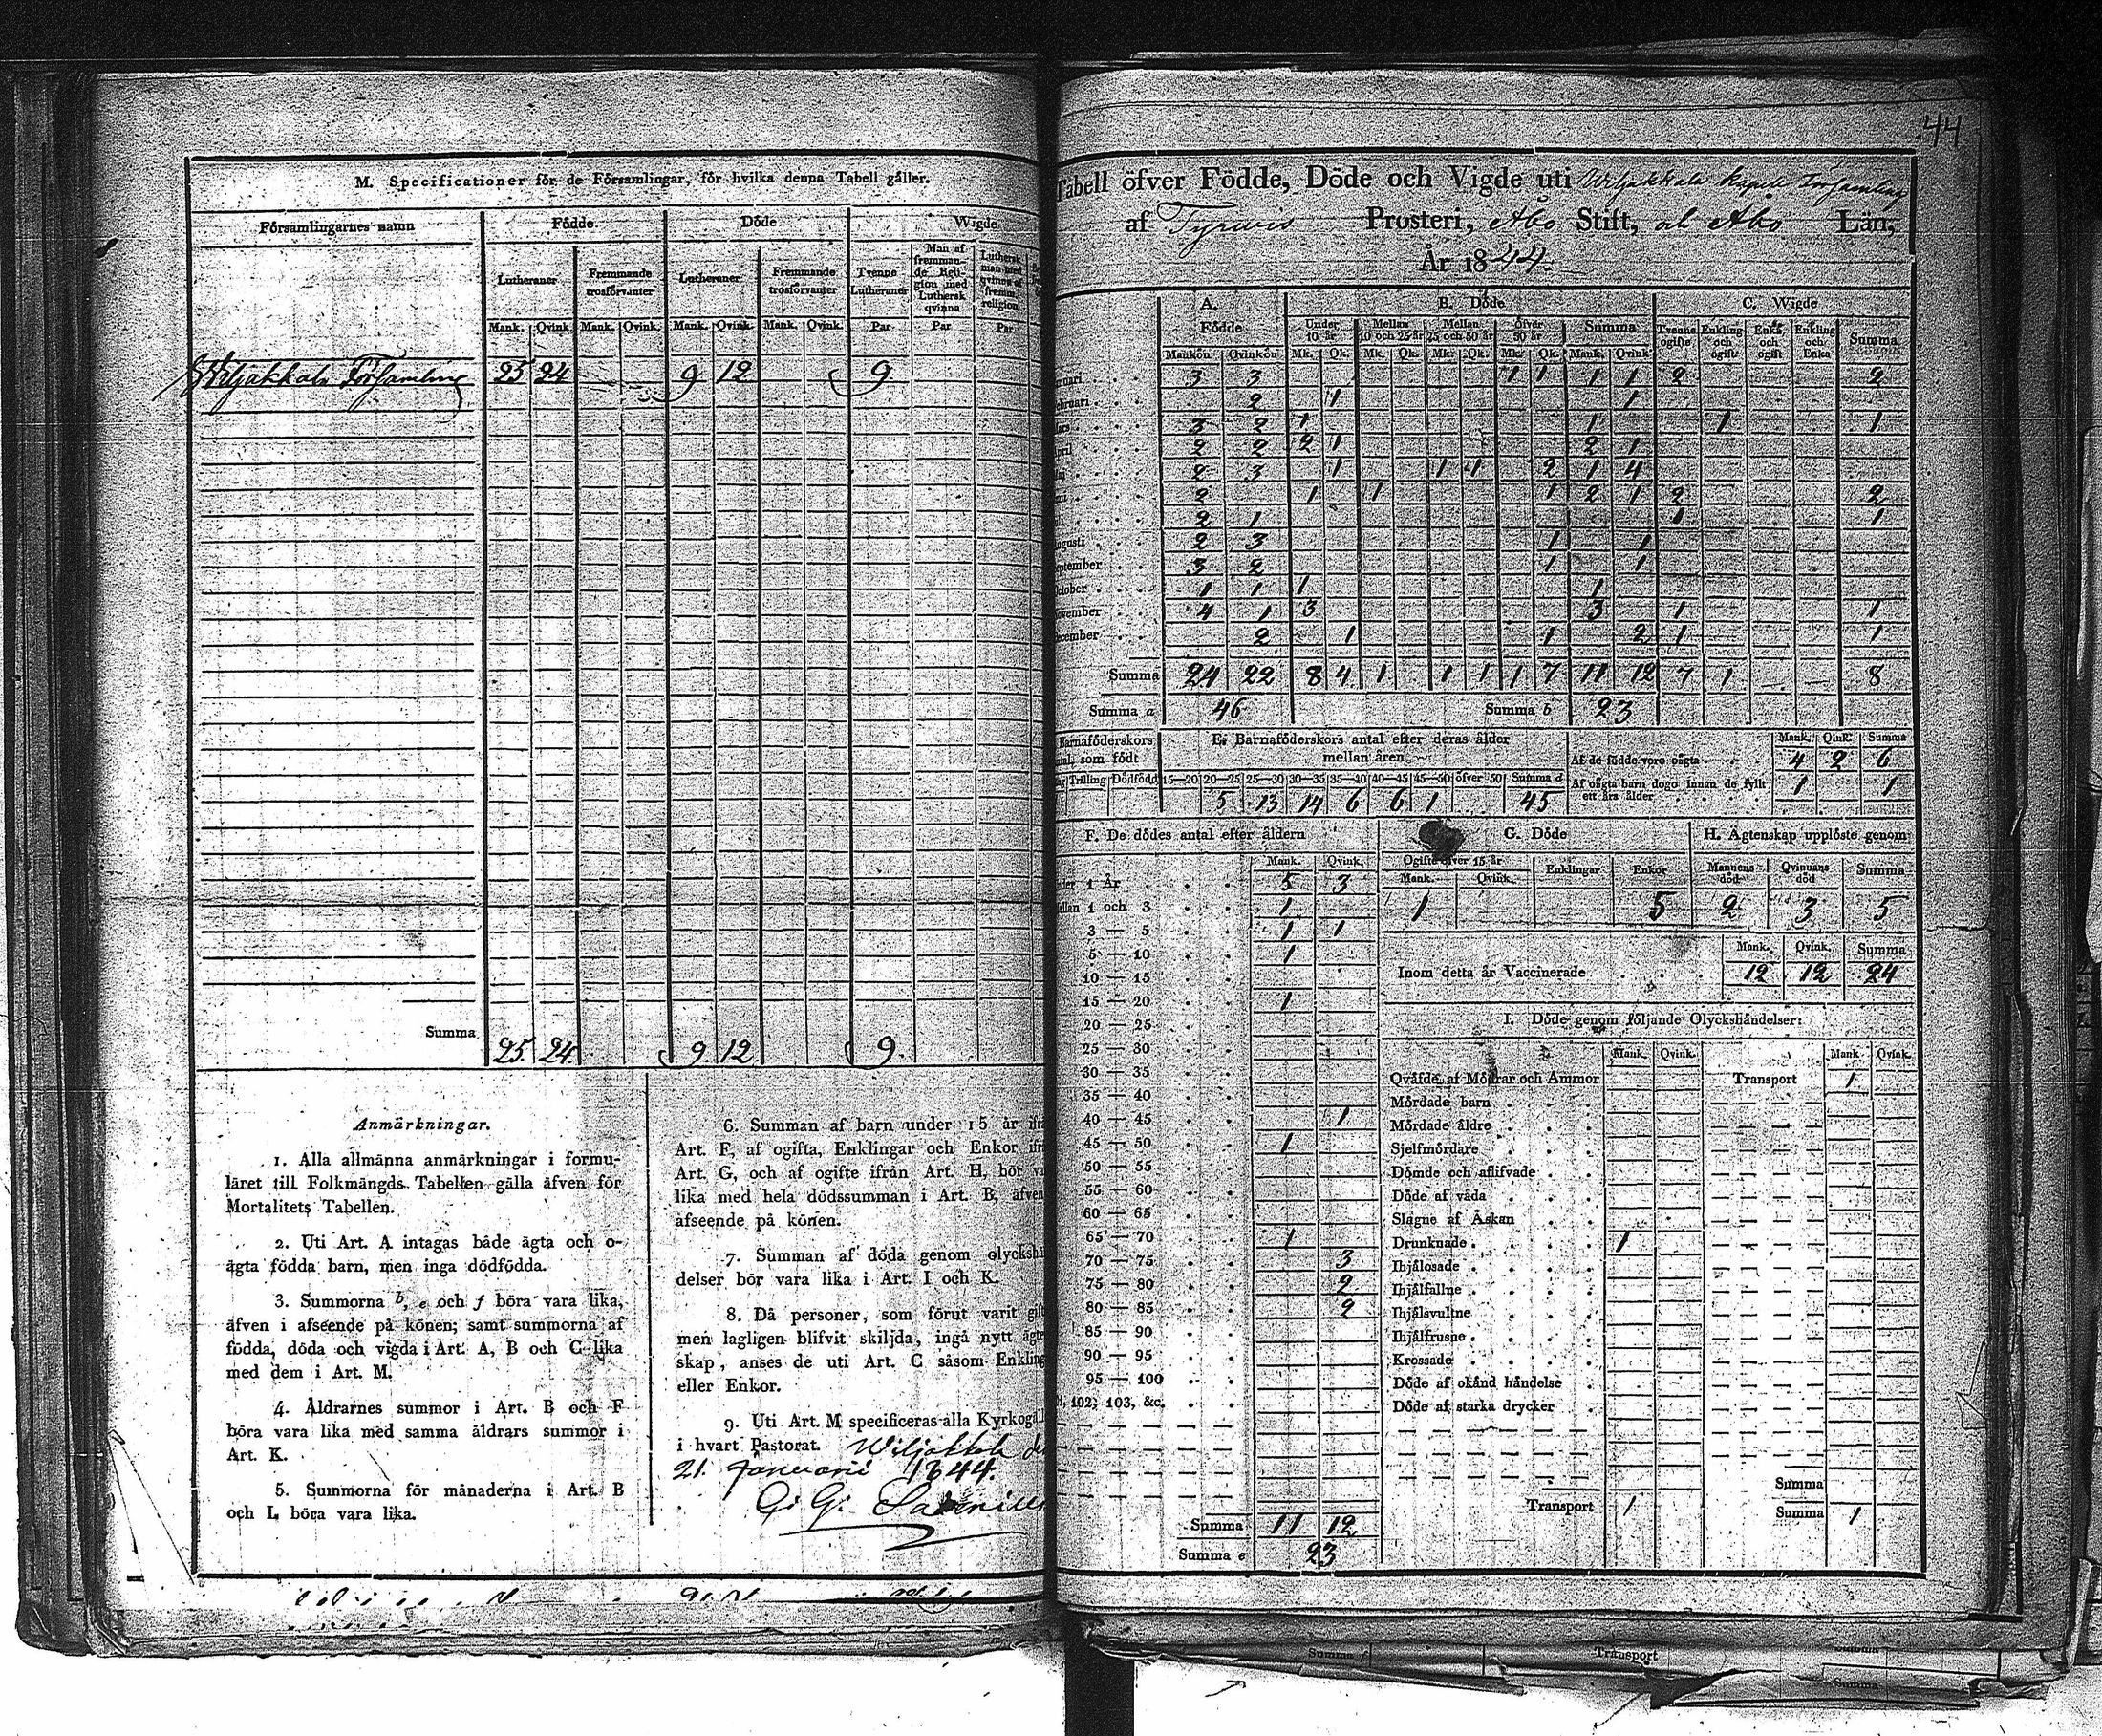 M. Specificationer för de Församlingar, för hvilka denna Tabell gäller.
Församlingarnes namn Födde Döde Wigde
Lutheraner Fremmande trosförvanter Lutheraner Fremmande trosförvanter Tvenne Lutheraner Man af fremmande Religion med Luthersk qvinna Luthersk man med qvinna af fremm. religion
Mank. Qvink. Mank. Qvink. Mank. Qvink. Mank. Qvink. Par Par Par
Wiljakkala Församling 25 24 9 12 9
Summa 25 24 9 12 9
Anmärkningar.
1. Alla allmänna anmärkningar i formu-
läret till Folkmängds Tabellen gälla äfven för
Mortalitets Tabellen.
2. Uti Art. A intagas både ägta och o-
ägta födda barn, men inga dödfödda.
3. Summorna b, e och f böra vara lika,
äfven i afseende på könen; samt summorna af
födda, döda och vigda i Art. A, B och C lika
med dem i Art. M.
4. Åldrarnes summor i Art. B och F
böra vara lika med samma åldrars summor i
Art. K.
5. Summorna för månaderna i Art. B
och L böra vara lika.
6. Summan af barn under 15 år
Art. F, af ogifta, Enklingar och Enkor
Art. G, och af ogifte ifrån Art. H, bör
lika med hela dödssumman i Art. B, äfven
afseende på könen.
7. Summan af döda genom olyckshä
delser bör vara lika i Art. I och K.
8. Då personer, som förut varit
men lagligen blifvit skiljda, ingå nytt ägte
skap, anses de uti Art. C såsom Enkling
eller Enkor.
9. Uti Art. M specificeras alla Kyrkogäll
i hvart Pastorat. Wiljakkala
21. Januarii 1844.
G: G:
44
Tabell öfver Födde, Döde och Vigde uti Wiljakkala Kapell Församling
af Tyrwis Prosteri, Åbo Stift, och Åbo Län,
År 1844.
A. Födde B. Döde C. Wigde
Under 10 år Mellan 10 och 25 år Mellan 25 och 50 år öfver 50 år Summa Tvenne ogifte Enkling och ogift Enka och ogift Enkling och Enka Summa
Mankön Qvinkön Mk. Qk. Mk. Qk. Mk. Qk. Mk. Qk. Mank. Qvink.
anuari 3 3 1 1 1 1 2 2
ebruari 2 1 1
ars 3 2 1 1 1 1
pril 2 2 2 1 2 1
2 3 1 1 1 2 1 4
2 1 1 1 2 1 2 2
2 1 1 1
ugusti 2 3 1 1
eptember 3 2 1 1
ctober 1 1 1 1
ovember 4 1 3 3 1 1
ecember 2 1 1 2 1 1
Summa 24 22 8 4 1 1 1 1 7 11 12 7 1 8
Summa a 46 Summa b 23
Barnaföderskors
tal, som födt
Trilling Dödfödd
E. Barnaföderskors antal efter deras ålder
mellan åren
15—20 20—25 25—30 30—35 35—40 40—45 45—50 öfver 50 Summa d
5 13 14 6 6 1 45
Mank. Qink. Summa
Af de födde voro oägta 4 2 6
Af oägta barn dogo innan de fyllt ett års ålder 1 1
F. De dödes antal efter åldern
Mank. Qvink.
nder 1 År 5 3
ellan 1 och 3 1
3 — 5 1 1
5 — 10 1
10 — 15
15 — 20 1
20 — 25
25 — 30
30 — 35
35 — 40
40 — 45 1
45 — 50 1
50 — 55
55 — 60
60 — 65
65 — 70 1
70 — 75 3
75 — 80 2
80 — 85 2
85 — 90
90 — 95
95 — 100
102, 103, &c.
Summa 11 12
Summa e 23
G. Döde
Ogifte öfver 15 år Enklingar Enkor
Mank. Qvink.
1 5
H. Ägtenskap upplöste genom
Mannens död Qvinnans död Summa
2 3 5
Mank. Qvink. Summa
Inom detta år Vaccinerade 12 12 24
I. Döde genom följande Olyckshändelser:
Mank. Qvink. Mank. Qvink.
Qväfde af Mödrar och Ammor Transport 1
Mördade barn
Mördade äldre
Sjelfmördare
Dömde och aflifvade
Döde af våda
Slagne af Åskan
Drunknade 1
Ihjälosade
Ihjälfallne
Ihjälsvultne
Ihjälfrusne
Krossade
Döde af okänd händelse
Döde af starka drycker
Summa
Transport 1 Summa 1
Summa f Transport Summa
Summa